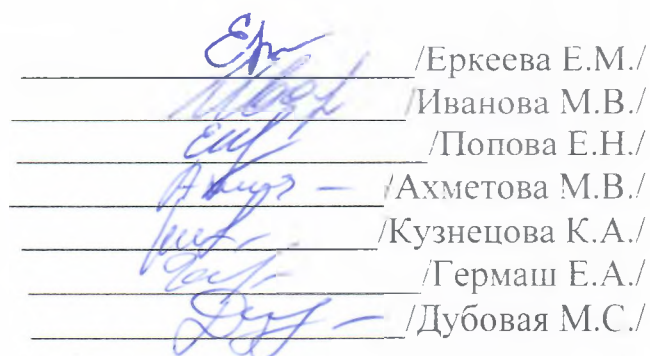 /Еркеева Е.М./
/Иванова М.В./
/Попова Е.Н./
/Ахметова М.В./
/Кузнецова К.А./
/Гермаш Е.А./
/Дубовая М.С./